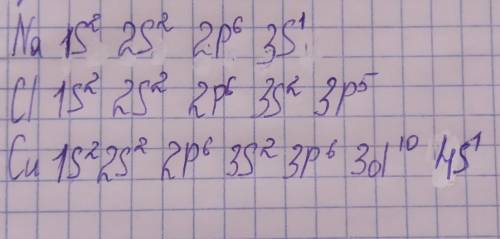 Na 1S² 2S² 2p⁶ 3S¹
Cl 1S² 2S² 2p⁶ 3S² 3p⁵
Cu 1S² 2S² 2p⁶ 3S² 3p⁶ 3d¹⁰ 4S¹